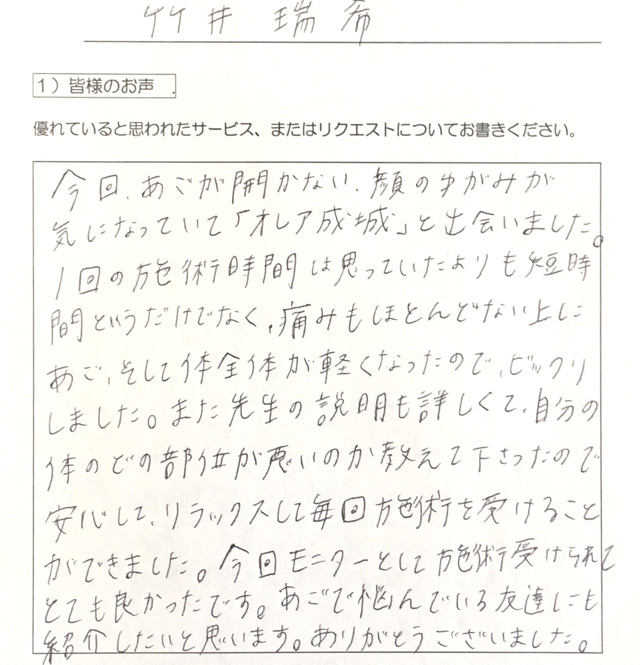 竹井 瑞希
1）皆様のお声
優れていると思われたサービス、またはリクエストについてお書きください。
今回、あごが開かない、顔のゆがみが
気になっていて「オレア成城」と出会いました。
1回の施術時間は思っていたよりも短時
間というだけでなく、痛みもほとんどない上に
あご、そして体全体が軽くなったので、ビックリ
しました。また先生の説明も詳しくて、自分の
体のどの部位が悪いのか教えて下さったので
安心して、リラックスして毎回施術を受けること
ができました。今回モニターとして施術受けられて
とても良かったです。あごで悩んでいる友達にも
紹介したいと思います。ありがとうございました。